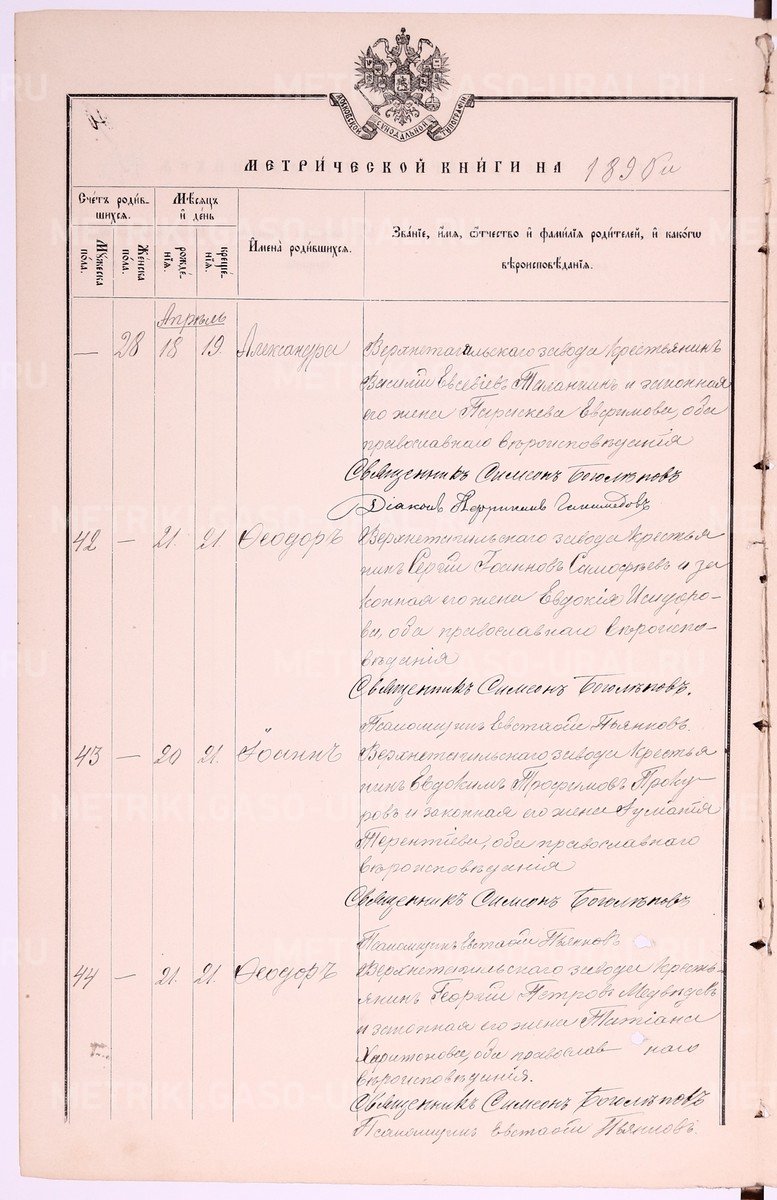 МОСКОВСКОЙ СѴНОДАЛЬНОЙ ТИПОГРАФІИ
МЕТРИ́ЧЕСКОЙ КНИ́ГИ НА 1896 и
Счетъ роди́вшихся.
Мѣсяцъ и҆ де́нь
Мꙋ́жеска по́ла.
Же́нска по́ла.
рожде́нїѧ.
креще́нїѧ.
И҆мена̀ роди́вшихсѧ.
Зва́нїе, и҆́мѧ, ѻ҆́тчество и҆ фами́лїѧ роди́телей, и҆ како́гѡ вѣроисповѣ́данїѧ.
Апрѣль
— 28 18 19. Александра
Верхнетагильскаго завода крестьянинъ
Василій Евсевіевъ Таланкинъ и законная
его жена Параскева Евфимова, оба
православнаго вѣроисповѣданія
Священникъ Симеонъ Боголѣповъ
Діаконъ
42 — 21. 21. Ѳеодоръ
Верхнетагильскаго завода крестья
нинъ Сергій Іоанновъ и за
конная его жена Евдокія Исидоро-
ва, оба православнаго вѣроиспо-
вѣданія
Священникъ Симеонъ Боголѣповъ.
Псаломщикъ Евстафій Пьянковъ.
43 — 20 21. Іоаннъ
Верхнетагильскаго завода крестья
нинъ Евдокимъ Трофимовъ Проку-
ровъ и законная его жена
Терентіева, оба православнаго
вѣроисповѣданія
Священникъ Симеонъ Боголѣповъ
Псаломщикъ Евстафій Пьянковъ
44 — 21. 21. Ѳеодоръ
Верхнетагильскаго завода кресть-
янинъ Георгій Петровъ Медвѣдевъ
и законная его жена Татіана
Харитонова, оба православ наго
вѣроисповѣданія.
Священникъ Симеонъ Боголѣповъ
Псаломщикъ Евстафій Пьянковъ.
METRIKI.GASO-URAL.RU